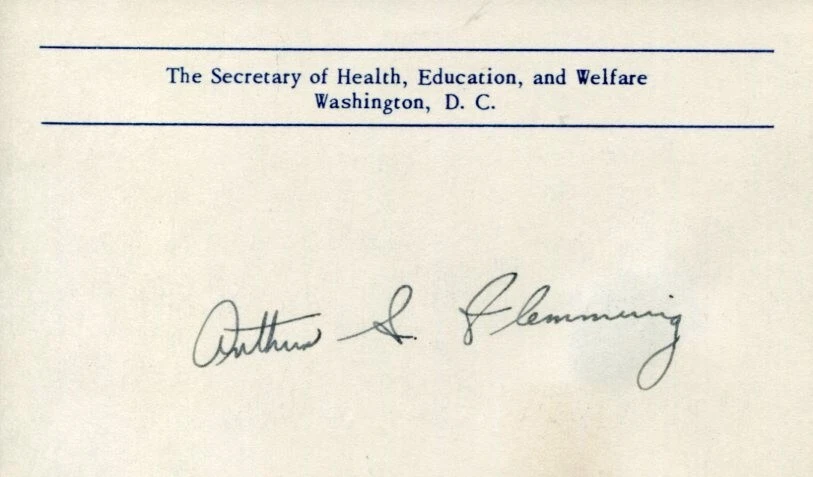 The Secretary of Health, Education, and Welfare
Washington, D. C.
Arthur S. Flemming